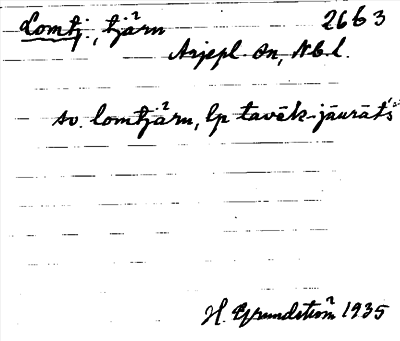 Lomtj., tjärn 2663
Arjepl. sn, Nbl.
sv. lomtjärn, lp tavēk-jāurāt's
H. Grundström 1935